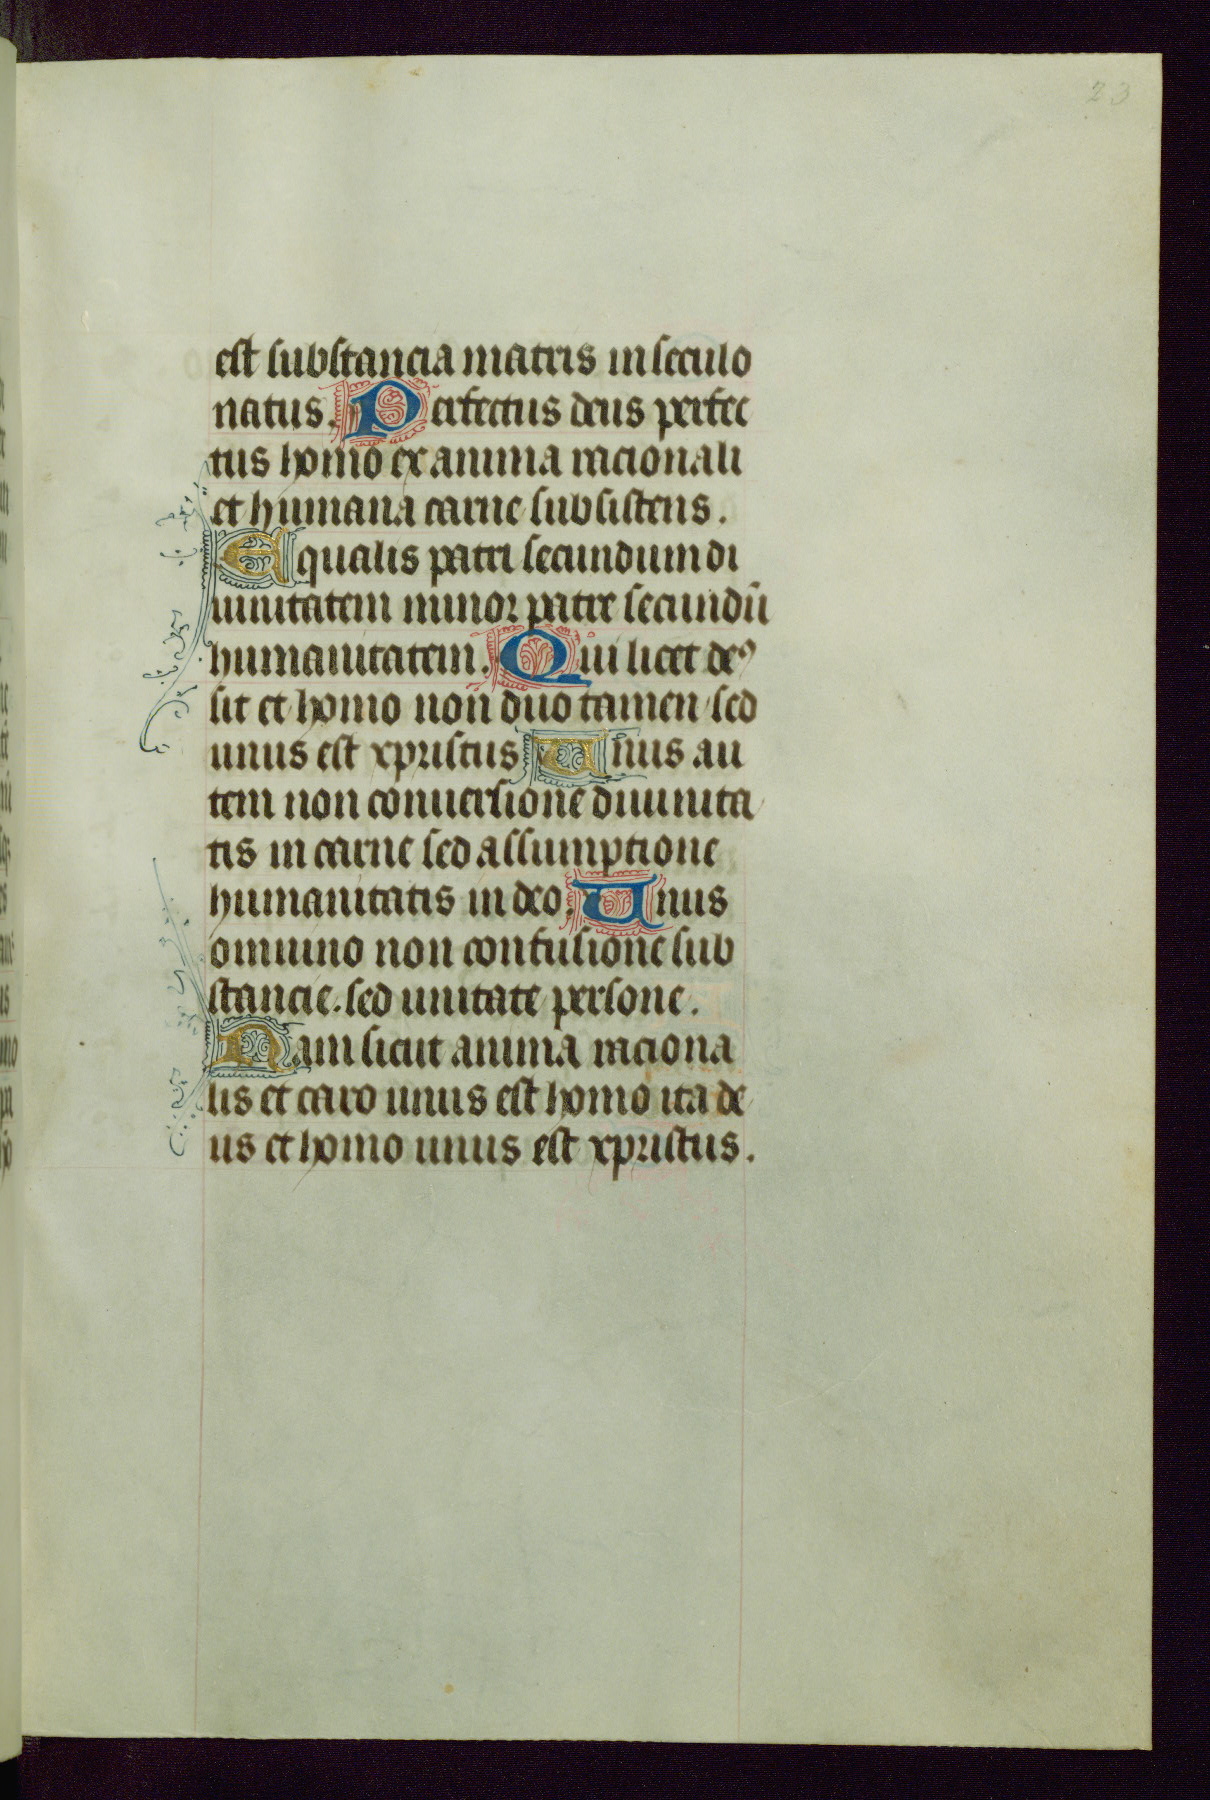 23
est substancia matris in seculo
natus. Perfectus deus perfec
tus homo ex anima racionali
et humana carne subsistens.
Equalis patri secundum di
uinitatem minor patre secundū
humanitatem. Qui licet deꝰ
sit et homo non duo tamen sed
unus est xpristus Unus au
tem non conuersione diuinita
tis in carne sed assumptione
humanitatis in deo. Unus
omnino non confusione sub
stancie. sed unitate persone.
Nam sicut anima raciona
lis et caro unus est homo ita de
us et homo unus est xpristus.